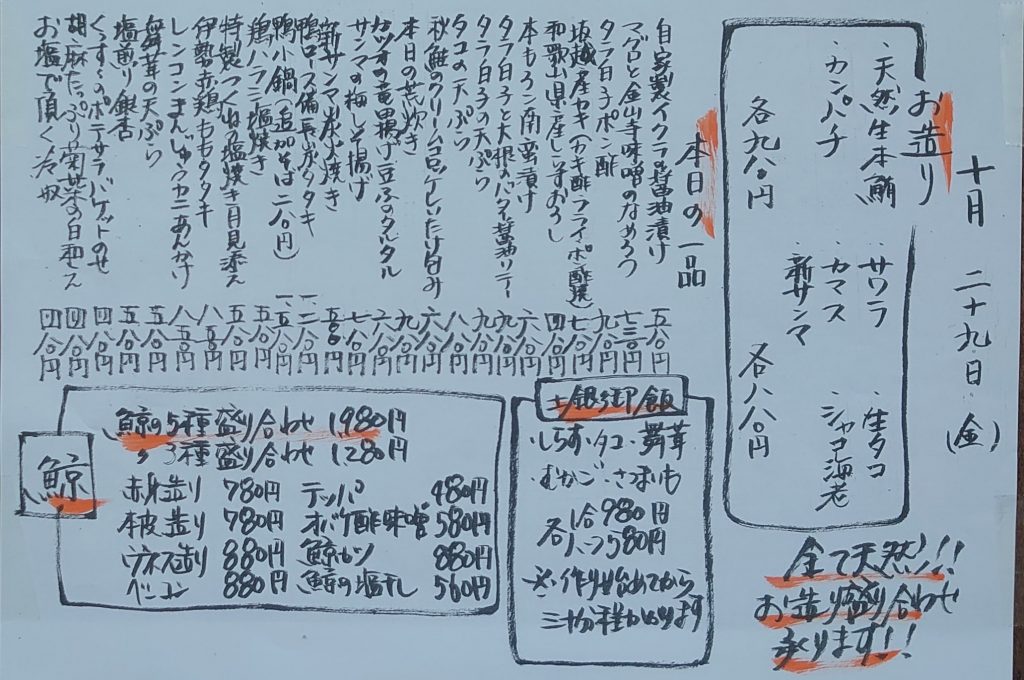 十月 二十九日(金)
お造り
・天然生本鮪
・カンパチ
各九八〇円
・サワラ
・カマス
・新サンマ
・生タコ
・シャコ海老
各八八〇円
全て天然!!
お造り盛り合わせ
承ります!!
本日の一品
自家製イクラの醤油漬け 五八〇円
マグロと金山寺味噌のなめろう 七三〇円
タラ白子ポン酢 九八〇円
坂越産カキ(カキ酢フライポン酢焼) 七八〇円
和歌山県産しらすおろし 四八〇円
本もろこ南蛮漬け 六八〇円
タラ白子と大根のバター醤油ソテー 九八〇円
タラ白子の天ぷら 九八〇円
タコの天ぷら 八八〇円
秋鮭のクリームコロッケしいたけ包み 八八〇円
本日の荒炊き 六八〇円
カツオの竜田揚げ豆ふのタルタル 九八〇円
サンマの梅しそ揚げ 六八〇円
新サンマ炭火焼き 七八〇円
鴨ロース備長炭タタキ
鴨小鍋(追加そば二八〇円)
鶏ハラミ塩焼き 五八〇円
特製つくね塩焼き月見添え 五八〇円
伊勢赤鶏ももタタキ 八八〇円
レンコンまんじゅうカニあんかけ 八五〇円
舞茸の天ぷら 五八〇円
塩煎り銀杏 五八〇円
くずし〜のポテサラバゲットのせ 四八〇円
胡麻たっぷり菊菜の白和え 四八〇円
お塩で頂く冷奴 四八〇円
土鍋御飯
・しらす・タコ・舞茸
・むかご・さつまいも
各 1合980円
ハーフ580円
※作り始めてから
三十分程かかります
鯨
鯨の5種盛り合わせ 1,980円
〃 3種盛り合わせ 1,280円
赤身造り 780円 テッパ 480円
本皮造り 780円 オバケ酢味噌 580円
ウネス造り 880円 鯨カツ 880円
ベーコン 880円 鯨の塩干し 560円